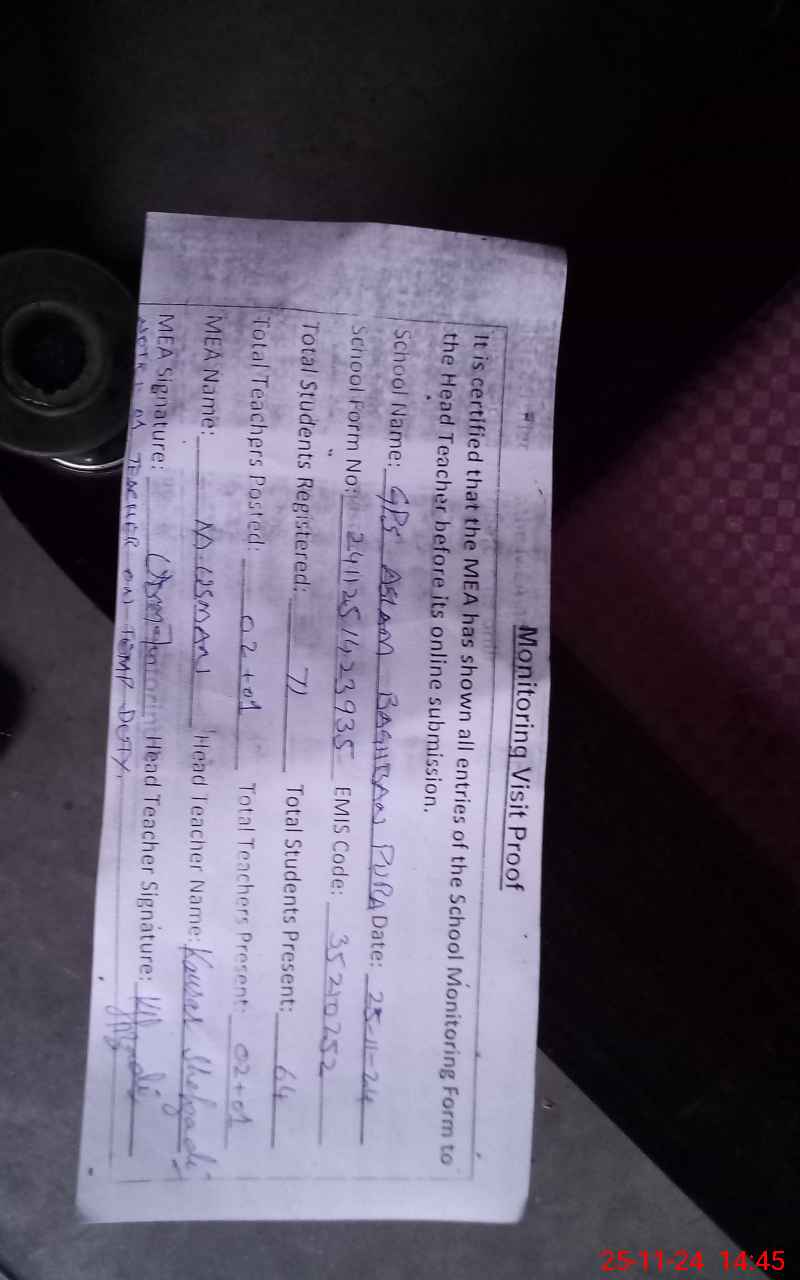 Monitoring Visit Proof
It is certified that the MEA has shown all entries of the School Monitoring Form to
the Head Teacher before its online submission.
School Name: GPS ASLAM BAGHBAN PURA Date: 25-11-24
School Form No: 2411251423935 EMIS Code: 35210252
Total Students Registered: 71 Total Students Present: 64
Total Teachers Posted: 02+01 Total Teachers Present: 02+01
MEA Name: M. USMAN Head Teacher Name: Kausar Shehzadi
MEA Signature: Head Teacher Signature:
NOTE: 01 TEACHER ON TEMP DUTY.
25-11-24 14:45